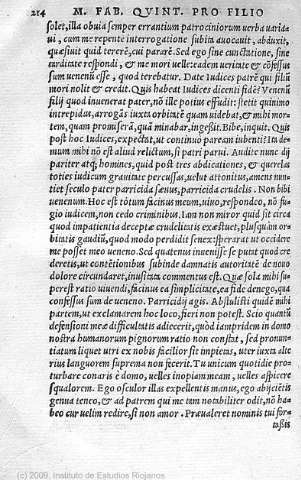 214 M. FAB. QVINT. PRO FILIO
solet, illa obuia semper errantium patrociniorum verba varida
ui, cum me repente interrogatione subita auocauit, abduxit,
quæsiuit quid tererē, cui pararē. Sed ego sine cunctatione, sine
turditate respondi, & me mori uelle: eadem ueritate & cōfessus
sum uenenū esse, quod terebatur. Date Iudices patrē qui filiū
mori nolit & credit. Quis habeat Iudices dicenti fidē? Venenū
filij quod inuenerat pater, nō ille potius effudit: stetit quinimo
intrepidus, arrogās iuxta orbitatē quam uidebat, & mihi mor-
tem, quam promiserā, quā minabar, ingessit. Bibe, inquit. Quis
hoc Iudices, expectat, ut continuo paream iubenti? In de-
num mihi nō est aliud relictum, si patri parui. Audite nunc dij
pariter atq; homines, quid post tres abdicationes, & querela
toties iudicum grauitate percussas, uelut attonitus, amens nun-
tiet seculo pater parricida sæuus, parricida crudelis. Non bibi
uenenum. Hoc est totum facinus meum, uiuo, respondeo, nō fu-
gio iudicem, non cedo criminibus. Iam non miror quid sit circa
quod impatientia deceptæ crudelitatis exæstuet, plusquàm or-
bitatis gaudiū, quod modo perdidit senex: sperarat ut occidere
me posset meo ueneno. Sed quatenus inuenisse se punt quod cre
deretis, ut cōtentionibus subinde damnatis autoritatē de nouo
dolore circundaret, inusitata commentus est. Quæ sola mihi su-
perest ratio uiuendi, facinus ea simplicitate, ea fide denego, qua
confessus sum de ueneno. Parricidij agis. Abstulisti quidē mihi
partem, ut exclamarem hoc loco, fieri non potest. Scio quantū
defensioni meæ difficultatis adiecerit, quòd iampridem in domo
nostra humanorum pignorum ratio non constat, sed pronun-
tiatum liquet utri ex nobis facilior sit impietas, uter iuxta alte
rius languorem suprema non iecerit. Tu unicum quotidie pro-
turbare conaris è domo, uelles inopiam meam, uelles aspicere
squalorem. Ego osculor illas expellentis manus, ego abijcētis
genua teneo, & ad patrem qui me tam nobiliter odit, nō ha-
beo cur uelim redire, si non amor. Præualeret nominis tui for-
tassis
(c) 2009, Instituto de Estudios Riojanos